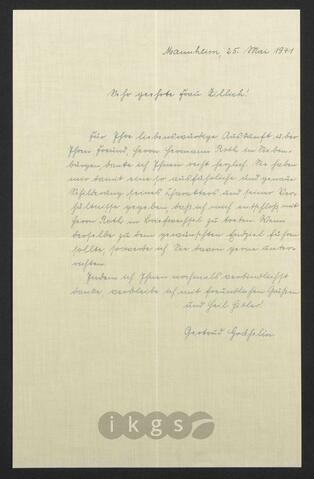 Mannheim, 25. Mai 1941
Sehr geehrte Frau Zillich!
Für Ihre liebenswürdige Auskunft über
Ihren Freund, Herrn Hermann Roth in Sieben-
bürgen, danke ich Ihnen recht herzlich. Sie haben
mir damit eine so ausführliche und genaue
Schilderung seines Charakters und seiner Ver-
hältnisse gegeben, daß ich mich entschloß mit
Herrn Roth in Briefwechsel zu treten. Wenn
derselbe zu dem gewünschten Endziel führen
sollte, so werde ich Sie davon gerne unter-
richten.
Indem ich Ihnen nochmals verbindlichst
danke, verbleibe ich mit freundlichen Grüßen
und Heil Hitler!
Gertrud
ikgs